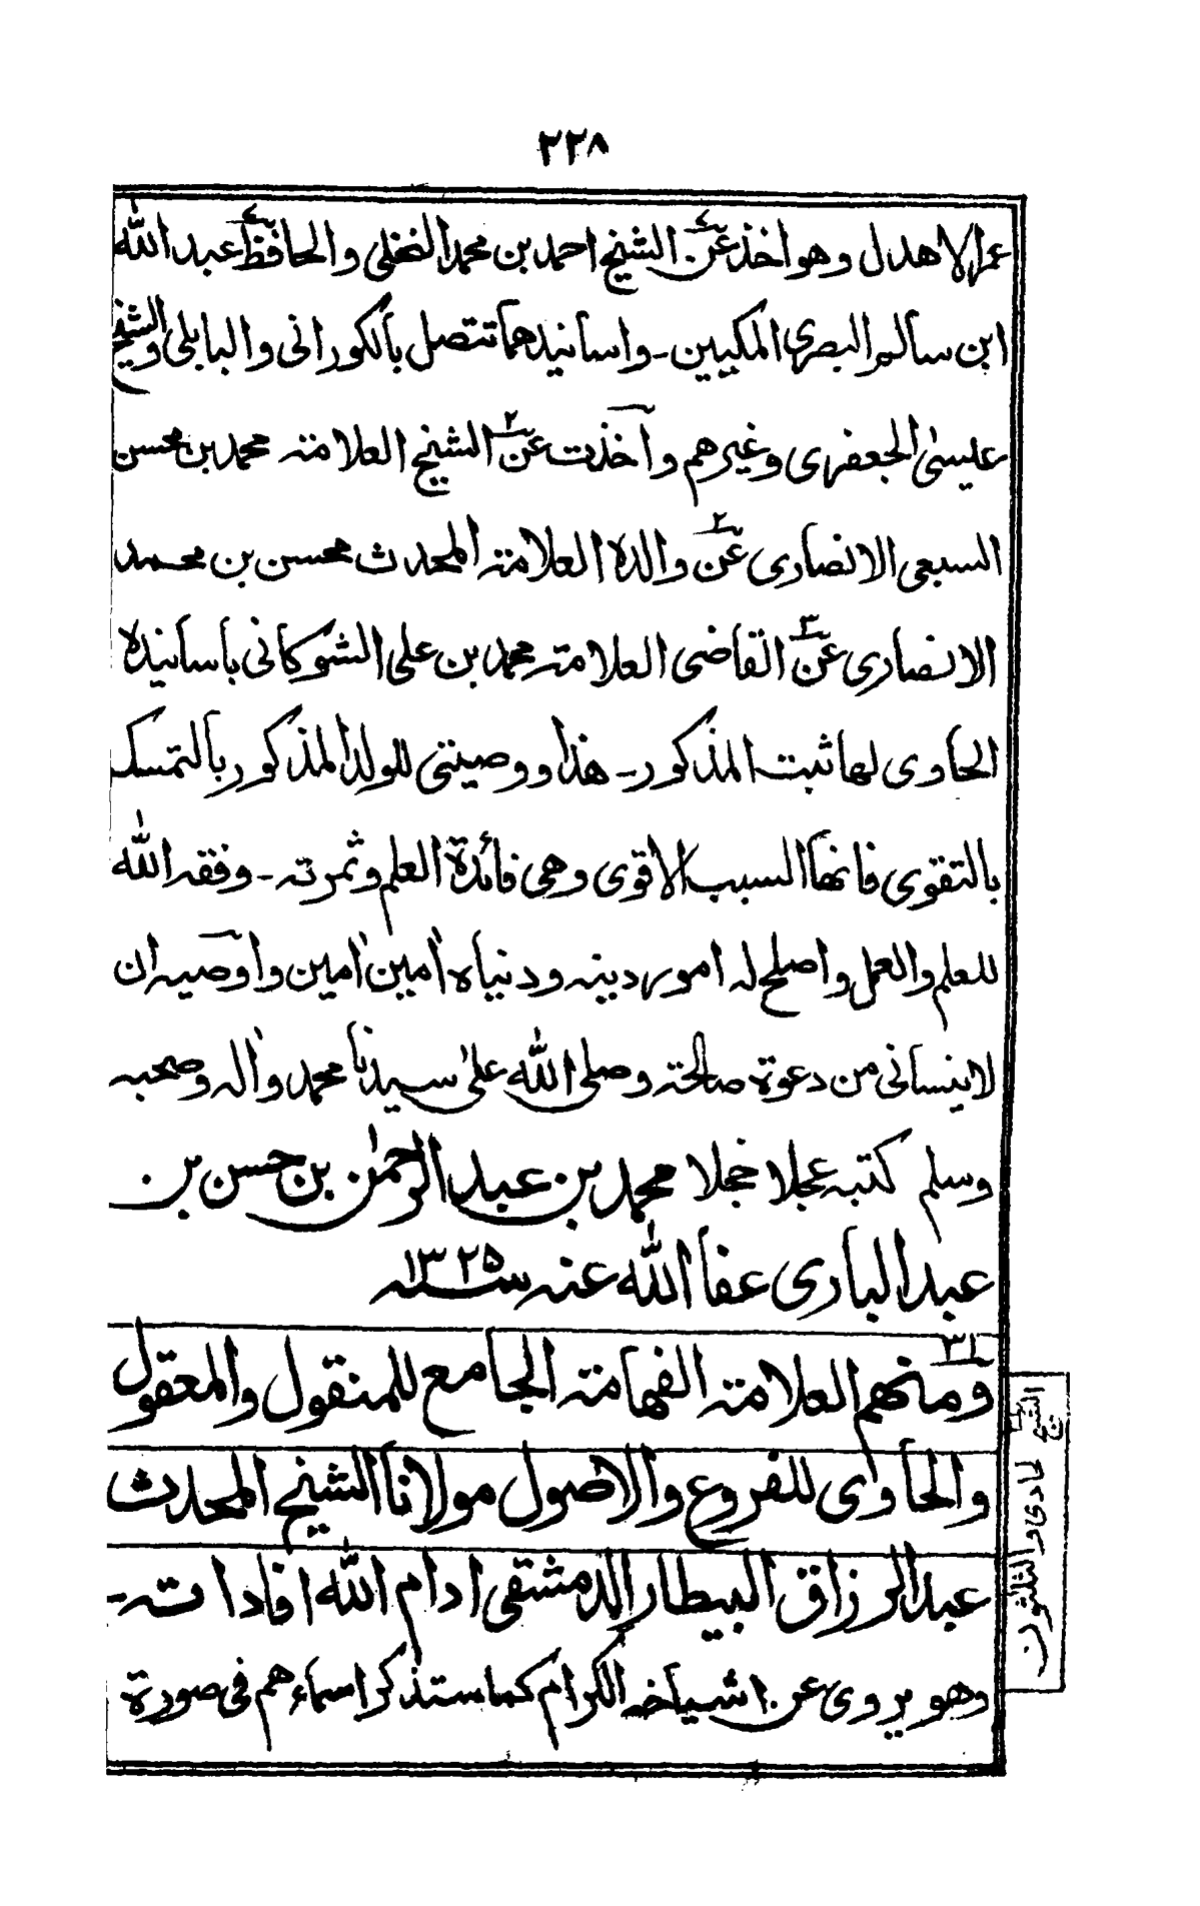 ٢٢٨
عمر الاهدل وهو اخذ عن الشيخ احمد بن محمد النخلى والحافظ عبد الله
ابن سالم البصرى المكيين ـ واسانيدهما تتصل بالكورانى والبابلى والشيخ
عليسىٰ الجعفرى وغيرهم وآخذت عن٢ الشيخ العلامة محمد بن محسن
السبعى الانصارى عن٢ والده العلامة المحدث محسن بن محمد
الانصارى عن٣ القاضى العلامة محمد بن على الشوكانى باسانيده
الحاوى لها ثبت المذكور ـ هذا ووصيتى للولد المذكور بالتمسك
بالتقوى فانها السبب الاقوى وهى فائدة العلم وثمرته ـ وفقه الله
للعلم والعمل واصلح له امور دينه ودنياه اٰمين اٰمين واوصيه ان
لاينسانى من دعوة صالحة وصلى الله علىٰ سيدنا محمد واٰله وصحبه
وسلم كتبه عجلا خجلا محمد بن عبد الرحمٰن بن حسن بن
عبد البارى عفا الله عنه سنه ١٣٢٥
٣١
ومنهم العلامة الفهامة الجامع للمنقول والمعقول
والحاوى للفروع والاصول مولانا الشيخ المحدث
عبد الرزاق البيطار الدمشقى ادام الله افاداته ـ
وهو يروى عن اشياخه الكرام كما ستذكر اسماءهم فى صورة
الشيخ
لحادى والثلثون